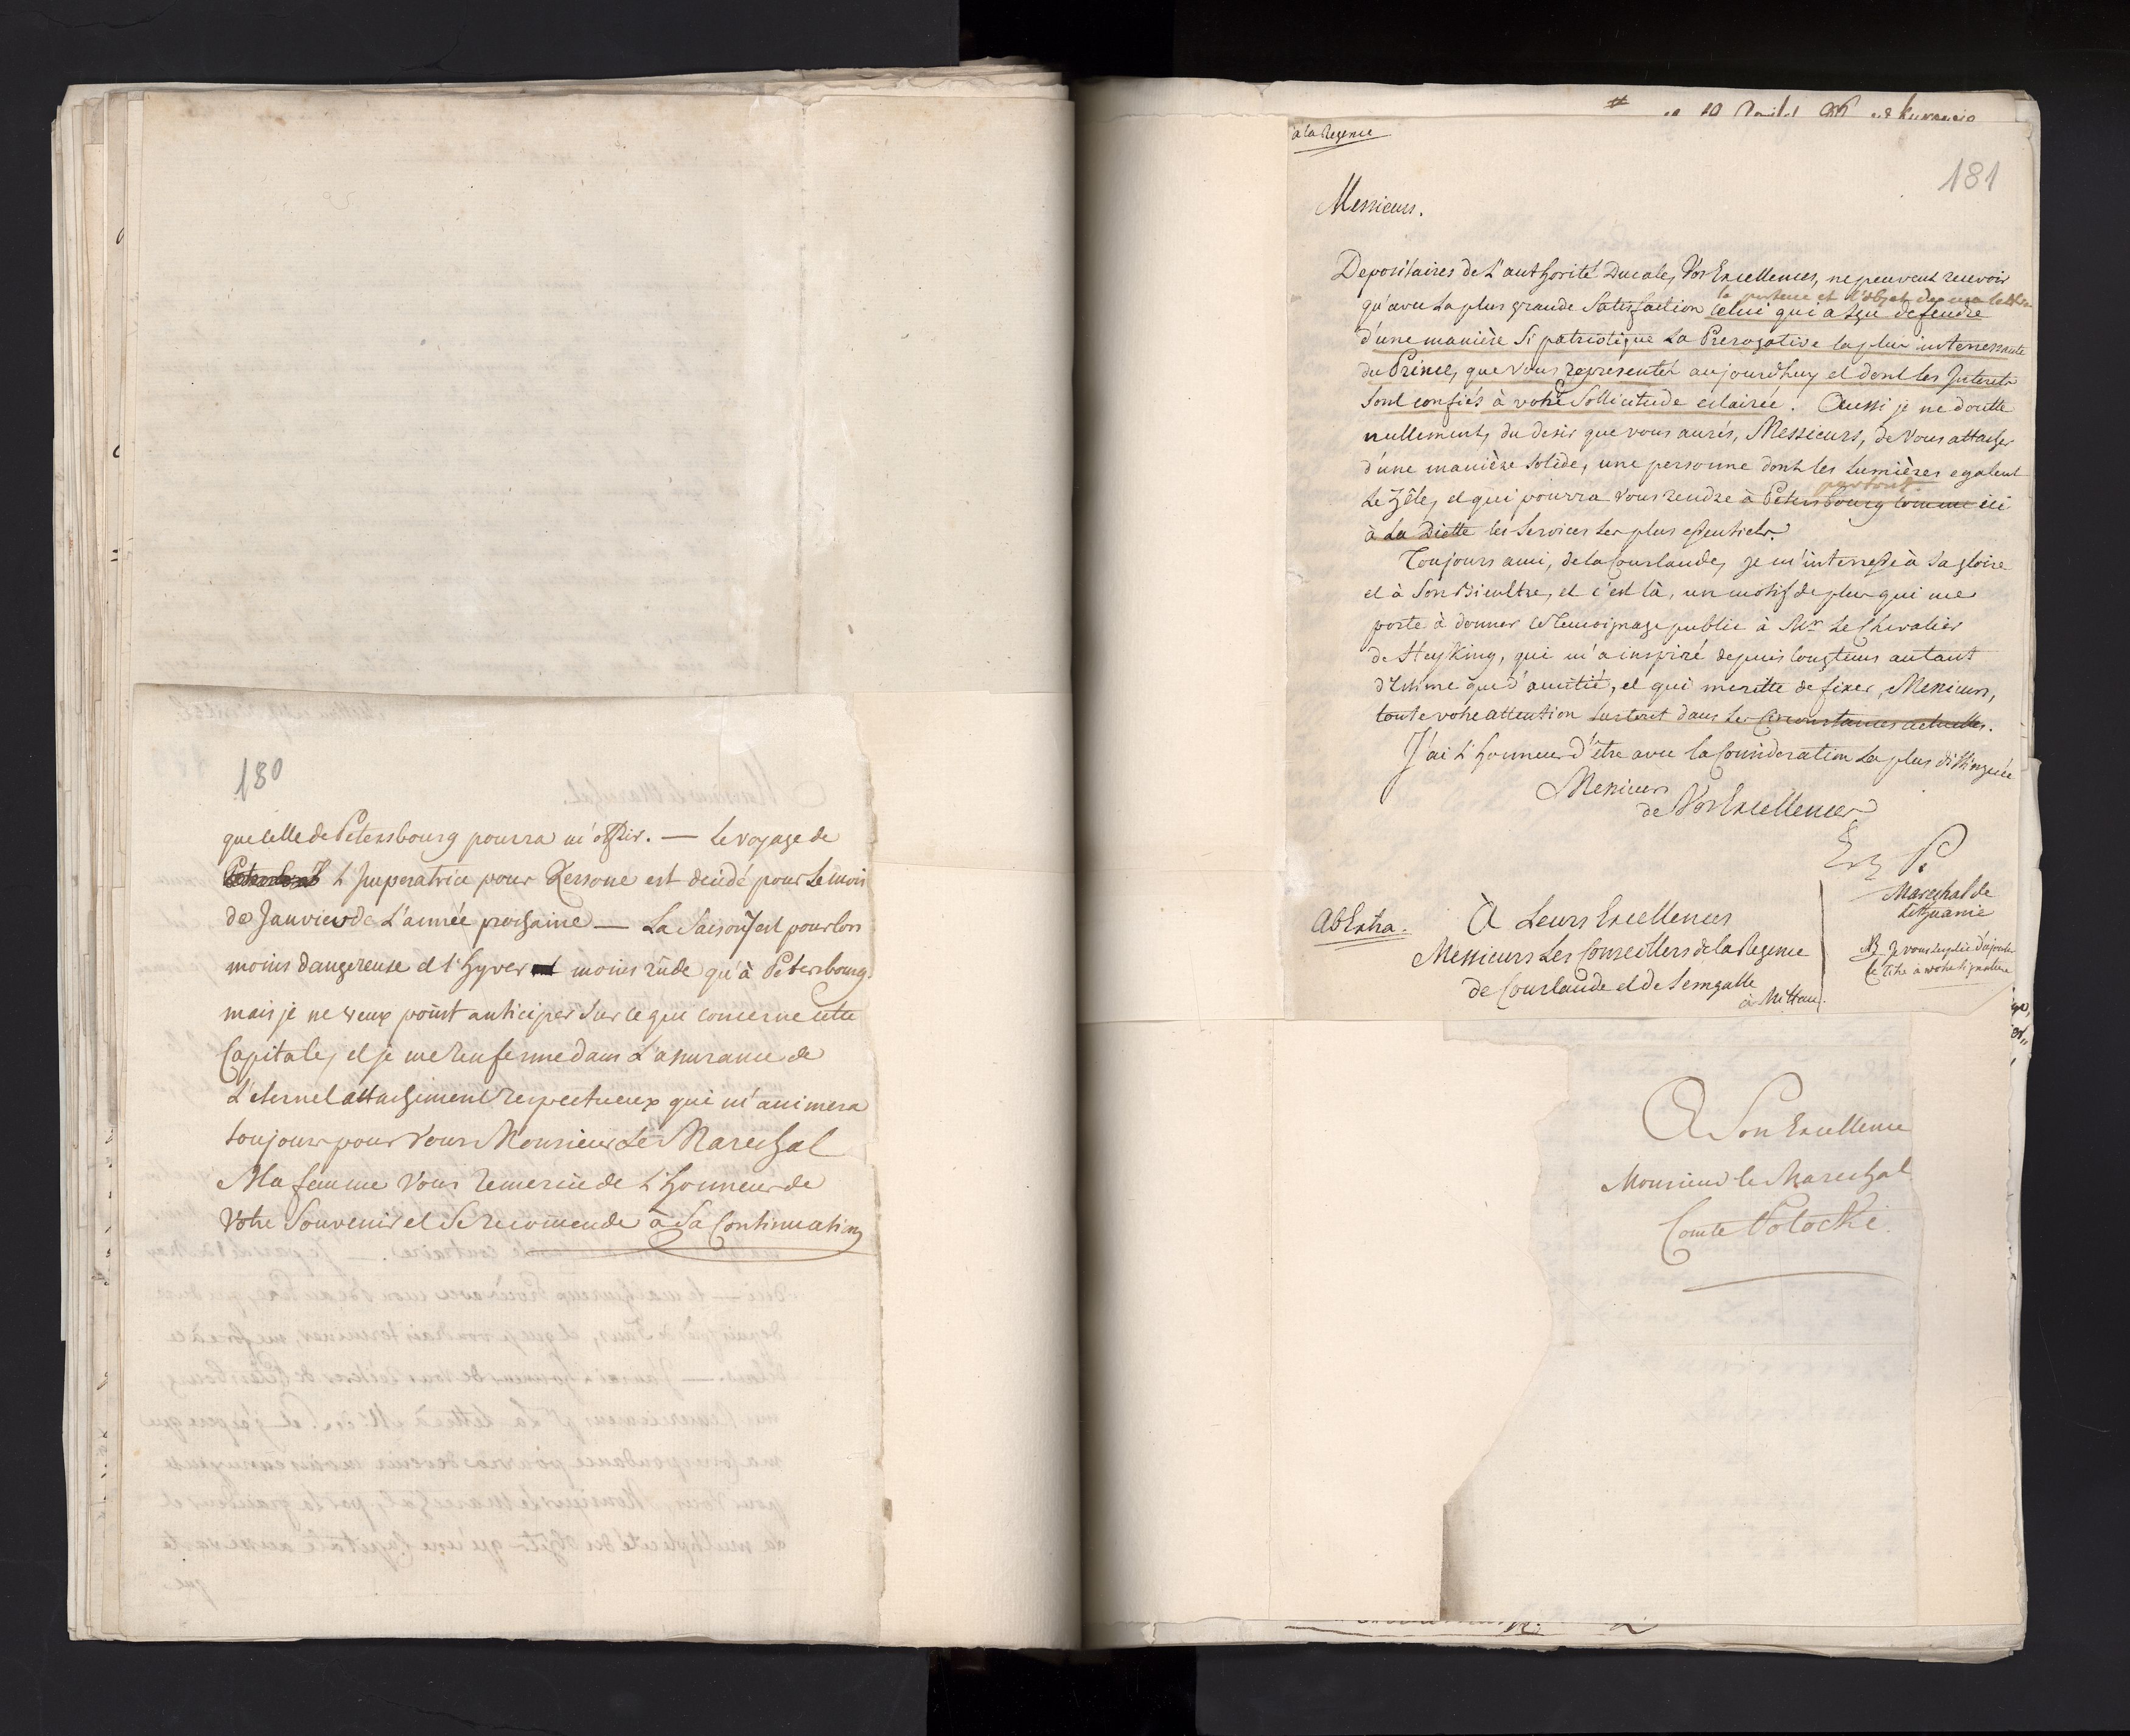 180
que celle de Petersbourg pourra m'offrir. — Le voyage de
L'Imperatrice pour Kersone est decidé pour le mois
de Janvier de L'année prochaine — La Saison est pour lors
moins dangereuse et l'hyver moins rude qu'à Petersbourg.
mais je ne veux point anticiper sur ce qui concerne cette
Capitale, et je me renferme dans L'assurance de
L'eternel attachement respectueux qui m'animera
toujours pour Vous Monsieur Le Marechal
Ma femme Vous remercie de L'honneur de
Votre Souvenir et Se recomende à Sa Continuation
à la Regence
181
Messieurs.
Depositaires de L'authorité Ducale, Vos Excellences, ne peuvent recevoir
le porteur et l'objet de ma lettre
qu'avec La plus grande Satisfaction celui qui a sçu defendre
d'une manière Si patriotique La Prerogative la plus interressante
du Prince, que Vous representez aujourdhuy et dont les Interets
Sont confiés à votre Sollicitude eclairée. Aussi je ne doutte
nullement, du desir que vous aurés, Messieurs, de Vous attacher
d'une manière Solide, une personne dont les Lumières egalent
partout
Le Zêle, et qui pourra Vous rendre à Petersbourg comme ici
à La Diette les Services les plus essentiels.
Toujours ami, de la Courlande, je m'interresse à Sa gloire
et à Son Bienêtre, et c'est là, un motif de plus qui me
porte à donner ce Temoignage public à Mr. Le Chevalier
de HeyKing, qui m'a inspiré depuis longtems autant
d'Estime que d'amitié, et qui meritte de fixer, Messieurs,
toute votre attention Surtout dans Les Circonstances actuelles.
J'ai L'honneur d'être avec la Consideration La plus distinguée
Messieurs
de Vos Excellences
P.
Marechal de
Lithuanie
NB Je vous suplie d'ajouter
ce Titre à votre signature
Ab Extra.
À Leurs Excellences
Messieurs Les Conseillers de la Regence
de Courlande et de Semgalle
à Mittau.
A Son Excellence
Monsieur le Marechal
Comte Potocki.